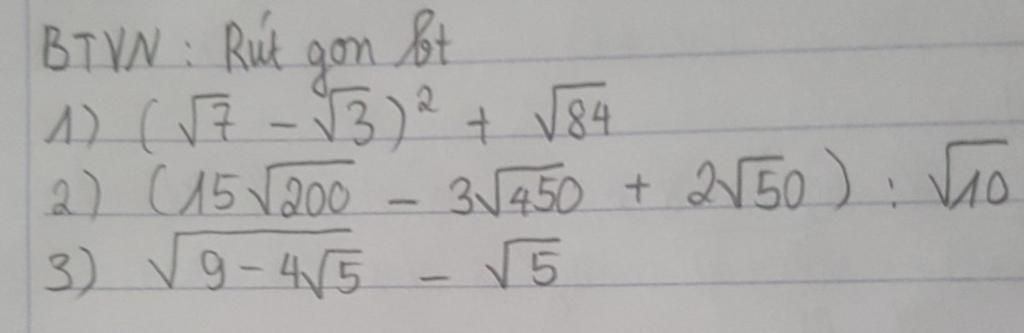 BTVN : Rút gọn bt
1) (√7 - √3)² + √84
2) (15√200 - 3√450 + 2√50) : √10
3) √(9 - 4√5) - √5